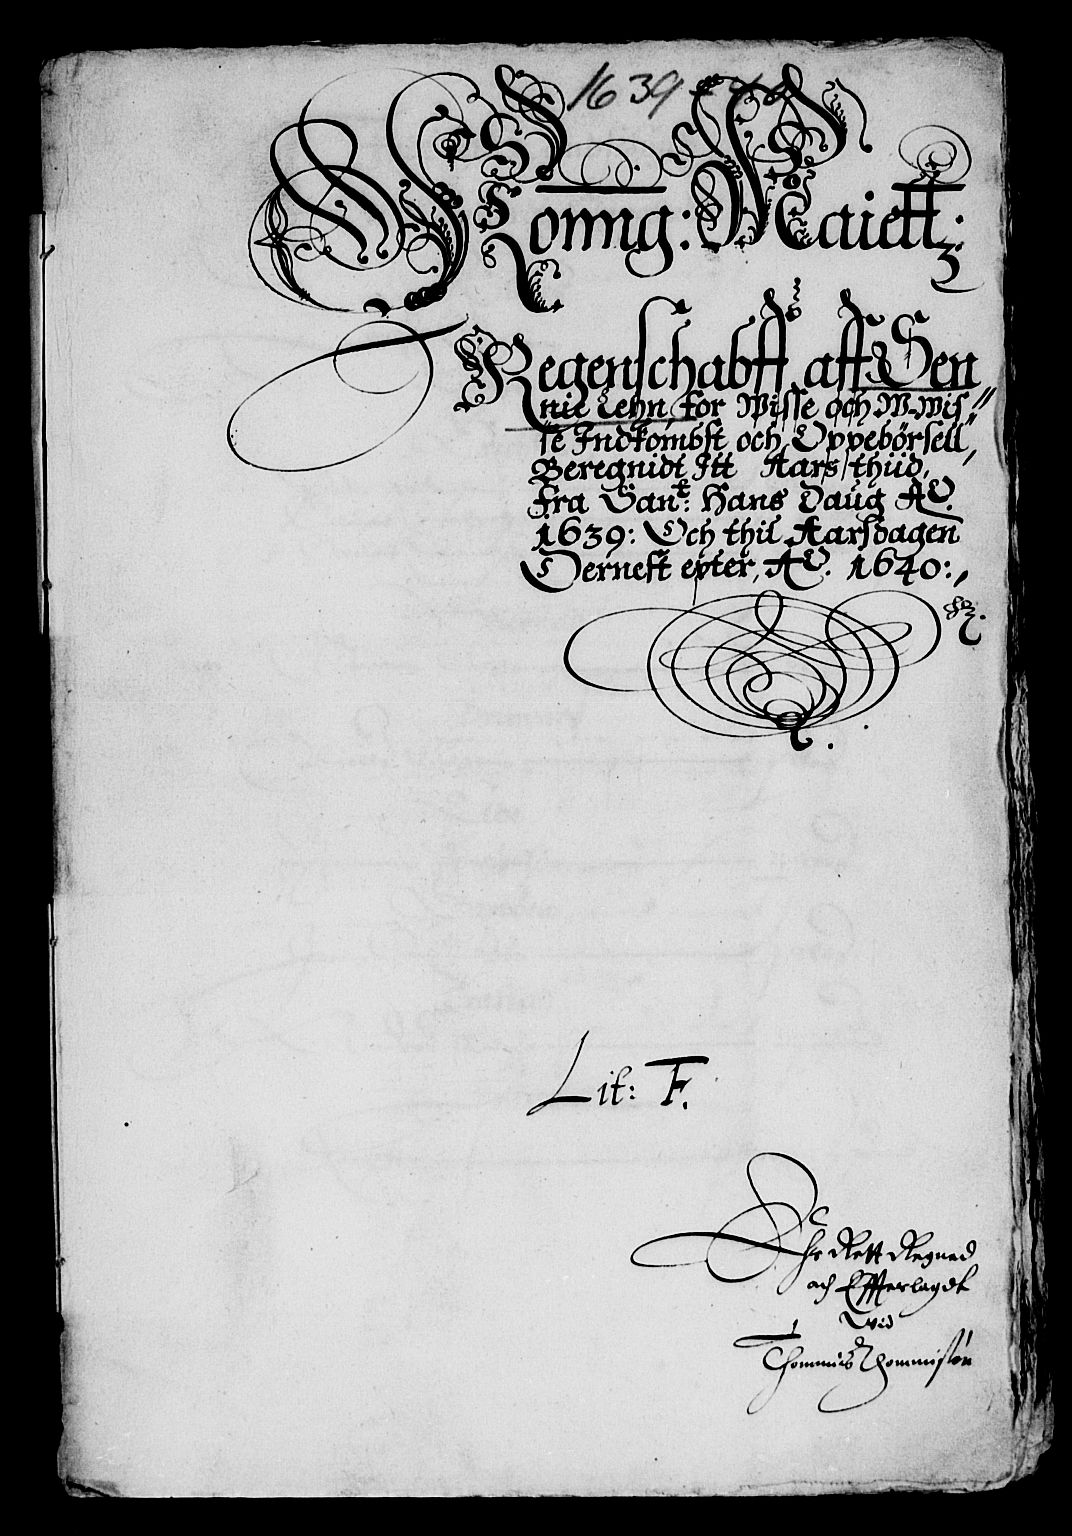 1639-40
Konnig: Maiestt:
Regenschabff aff Sen
nie Lehn for Wisse och W-wis
se Indkombst och Oppebörsell,
Beregnidt Itt Aars thiid,
fra Sanct: Hans Daug Ao.
1639: Och thil Aarsdagen
Dernest epter, Ao. 1640:
Lit: F.
Ehr Rett Regned
och Effterlagdt
Wid
Thommis Thommisøn